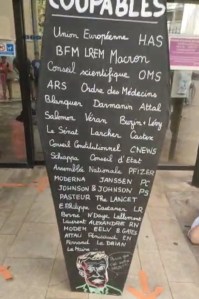 COUPABLES
Union Européenne HAS
BFM LREM Macron
Conseil scientifique OMS
ARS Ordre des Médecins
Blanquer Darmanin Attal
Salomon Véran Buzin + Lévy
Le Sénat Larcher Castex
Conseil Constitutionnel CNEWS
Schiappa Conseil d'Etat
Assemblée Nationale PFIZER
MODERNA JANSSEN PC
JOHNSON & JOHNSON PS
PASTEUR THE LANCET
E. Philippe Castaner LR
Borne N'Diaye Lallement
Laurent ALEXANDRE RN
MODEM EELV
ATTALI
LE DRIAN
Le Maire